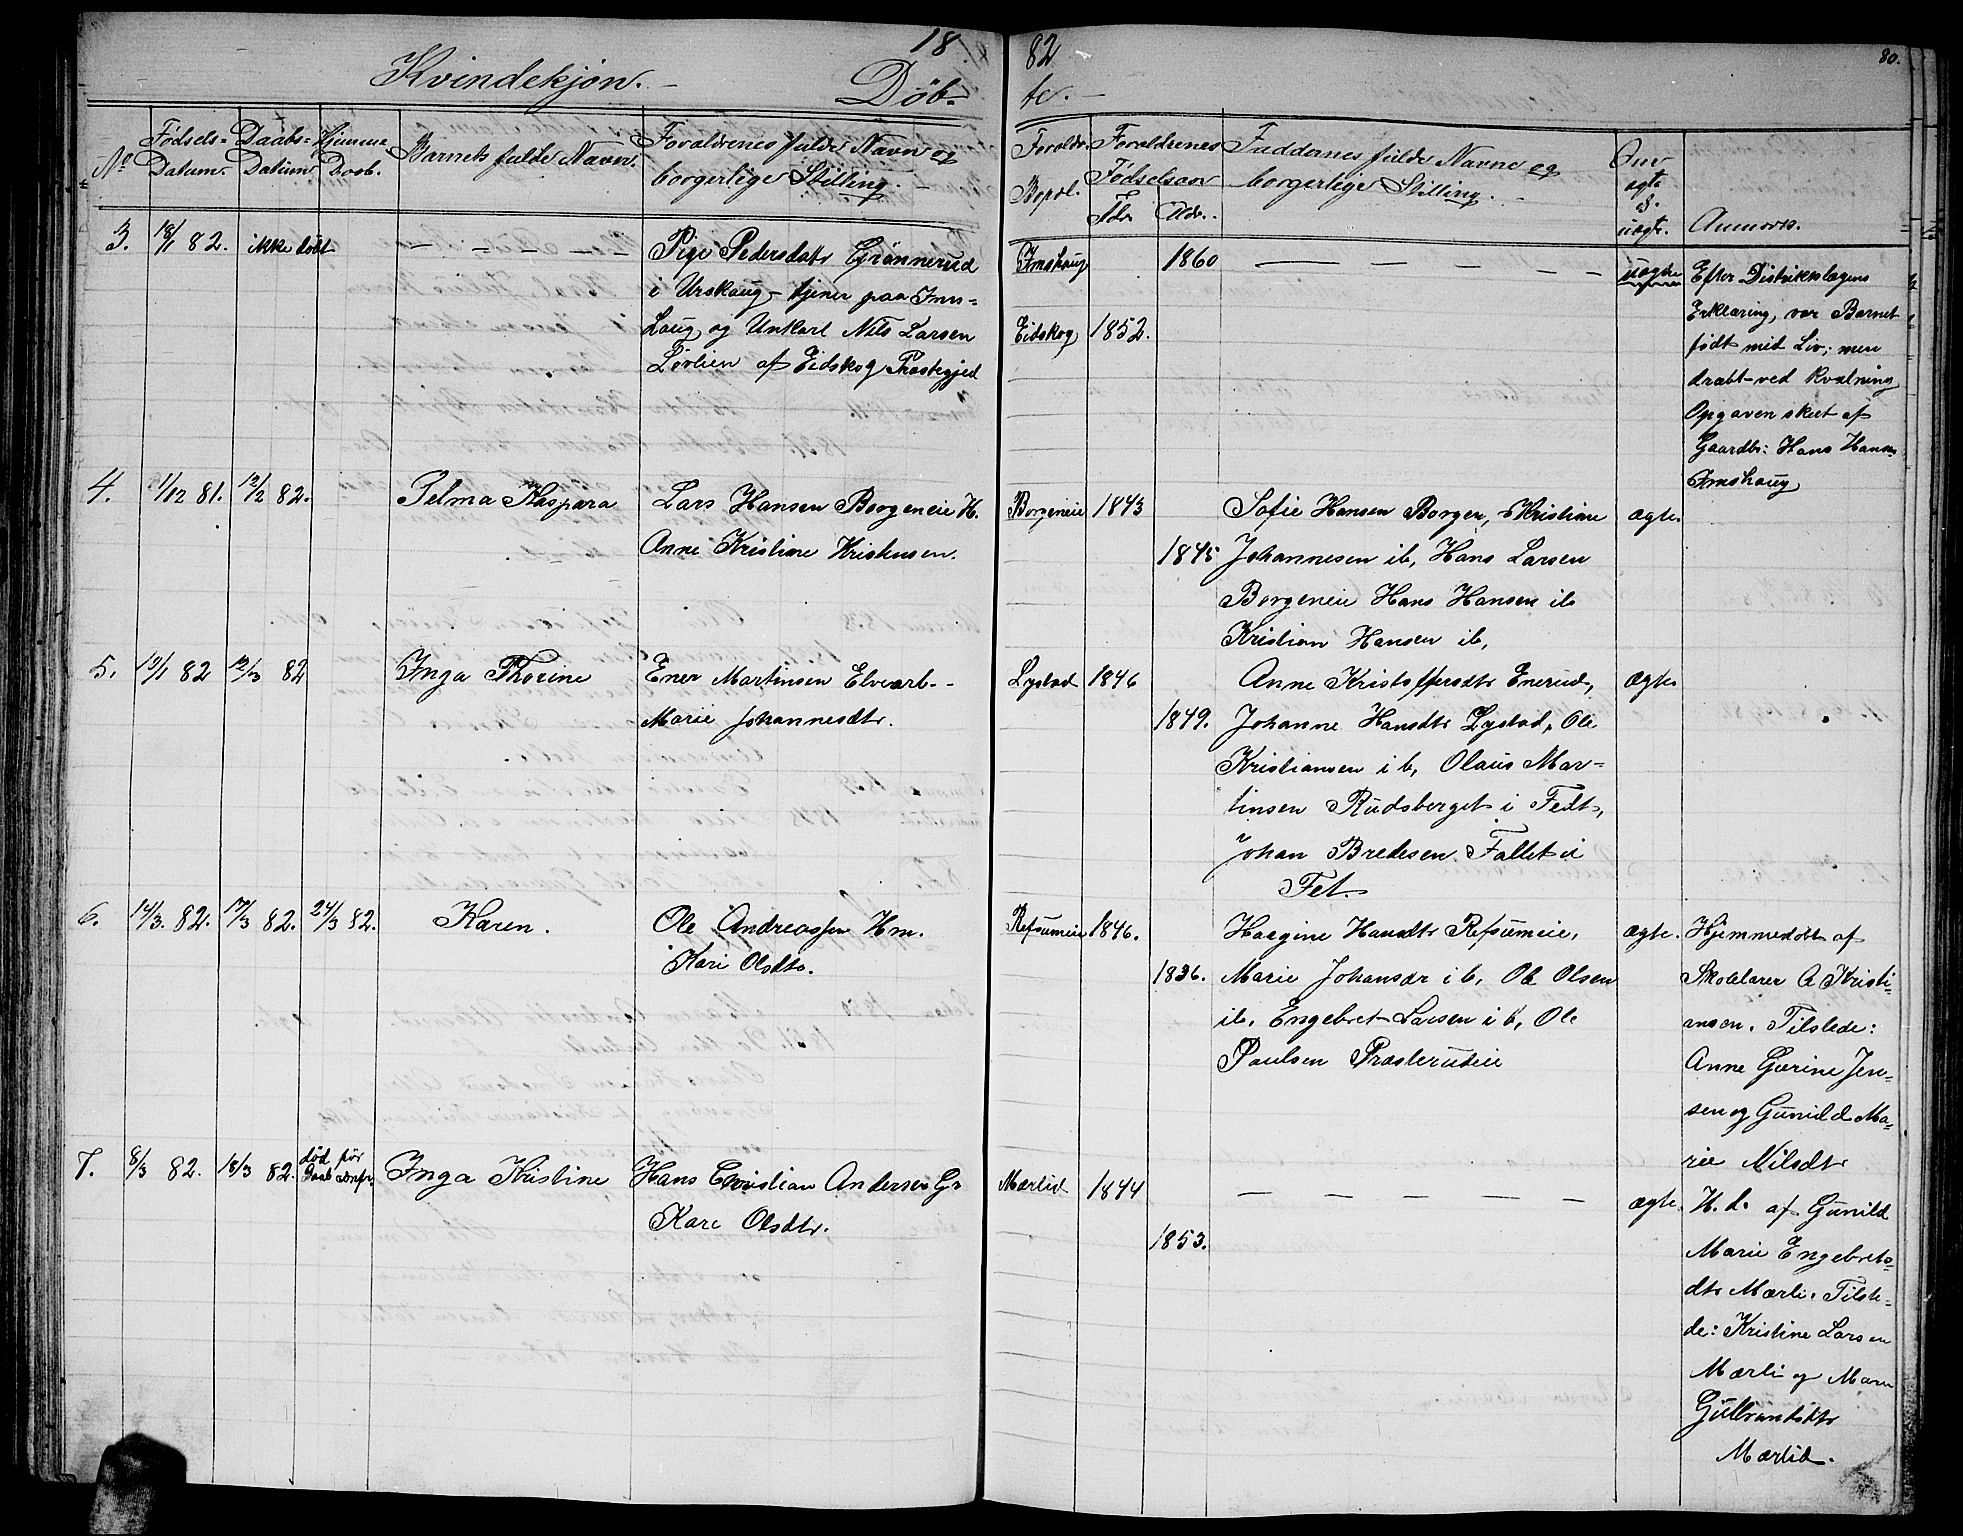 18 82 80.
Kvindekjøn. Døb- te.
No Fødsels- Datum. Daabs- Datum Hjemme Daab. Barnets fulde Navn. Forældrenes fulde Navn og borgerlige Stilling. Forældr. Bopæl. Forældrenes Fødselsaar Fdr. Mdr. Faddernes fulde Navne og borgerlige Stilling. Om ægte el. uægte. Anmærk.
3. 18/1 82. ikke døbt
Pige Pedersdatr Grønnerud
i Urskaug - tjener paa Ims-
haug, og Unkarl Nils Larsen
Løvlien af Eidskog Præstegjed
Imshaug 1860 uægte
Eidskog 1852.
Efter Distriktslægens
Erklæring, var Barnet
født med Liv; men
dræbt ved Kvælning
Opgaven skeet af
Gaardbr: Hans Hansen
Imshaug
4. 1/12 81. 12/2 82. Telma Kaspara
Lars Hansen Borgeneie H.
Anne Kristine Kristensen.
Borgeneie 1843
1845
Sofie Hansen Borgen, Kristiane
Johannesen ib, Hans Larsen
Borgeneie Hans Hansen ib
Kristian Hansen ib,
ægte.
5. 19/1 82 12/3 82 Inga Thorine
Ener Martinsen Elvearb.
Marie Johannesdtr.
Lystad 1846
1849.
Anne Kristoffersdtr Enerud,
Johanne Hansdtr Lystad, Ole
Kristiansen ib, Olaus Mar-
tinsen Rudsberget i Fedt,
Johan Bredesen Fallet i
Fet.
ægte
6. 14/3. 82. 17/3 82. 24/3 82. Karen.
Ole Andreassen Hm.
Kari Olsdtr.
Refsumeie 1846.
1836.
Haagine Hansdtr Refsumeie,
Marie Johansdr ib, Ole Olsen
ib, Engebret Larsen ib, Ole
Paulsen Præsterudeie
ægte.
Hjemmedøbt af
Skolelærer A Kristi-
ansen. Tilstede:
Anne Gurine Jen-
sen og Gunild Ma-
rie Nilsdtr
7. 8/3 82. 18/3 82. død før Daab
Inga Kristine
Hans Christian Andersen Gr
Kari Olsdtr.
Mærlid 1844
1853.
ægte.
H. d. af Gunild
Marie Engebrets-
dtr Mærli. Tilste-
de: Kristine Larsen
Mærli og Maren
Gulbrandsdtr
Mærlid.